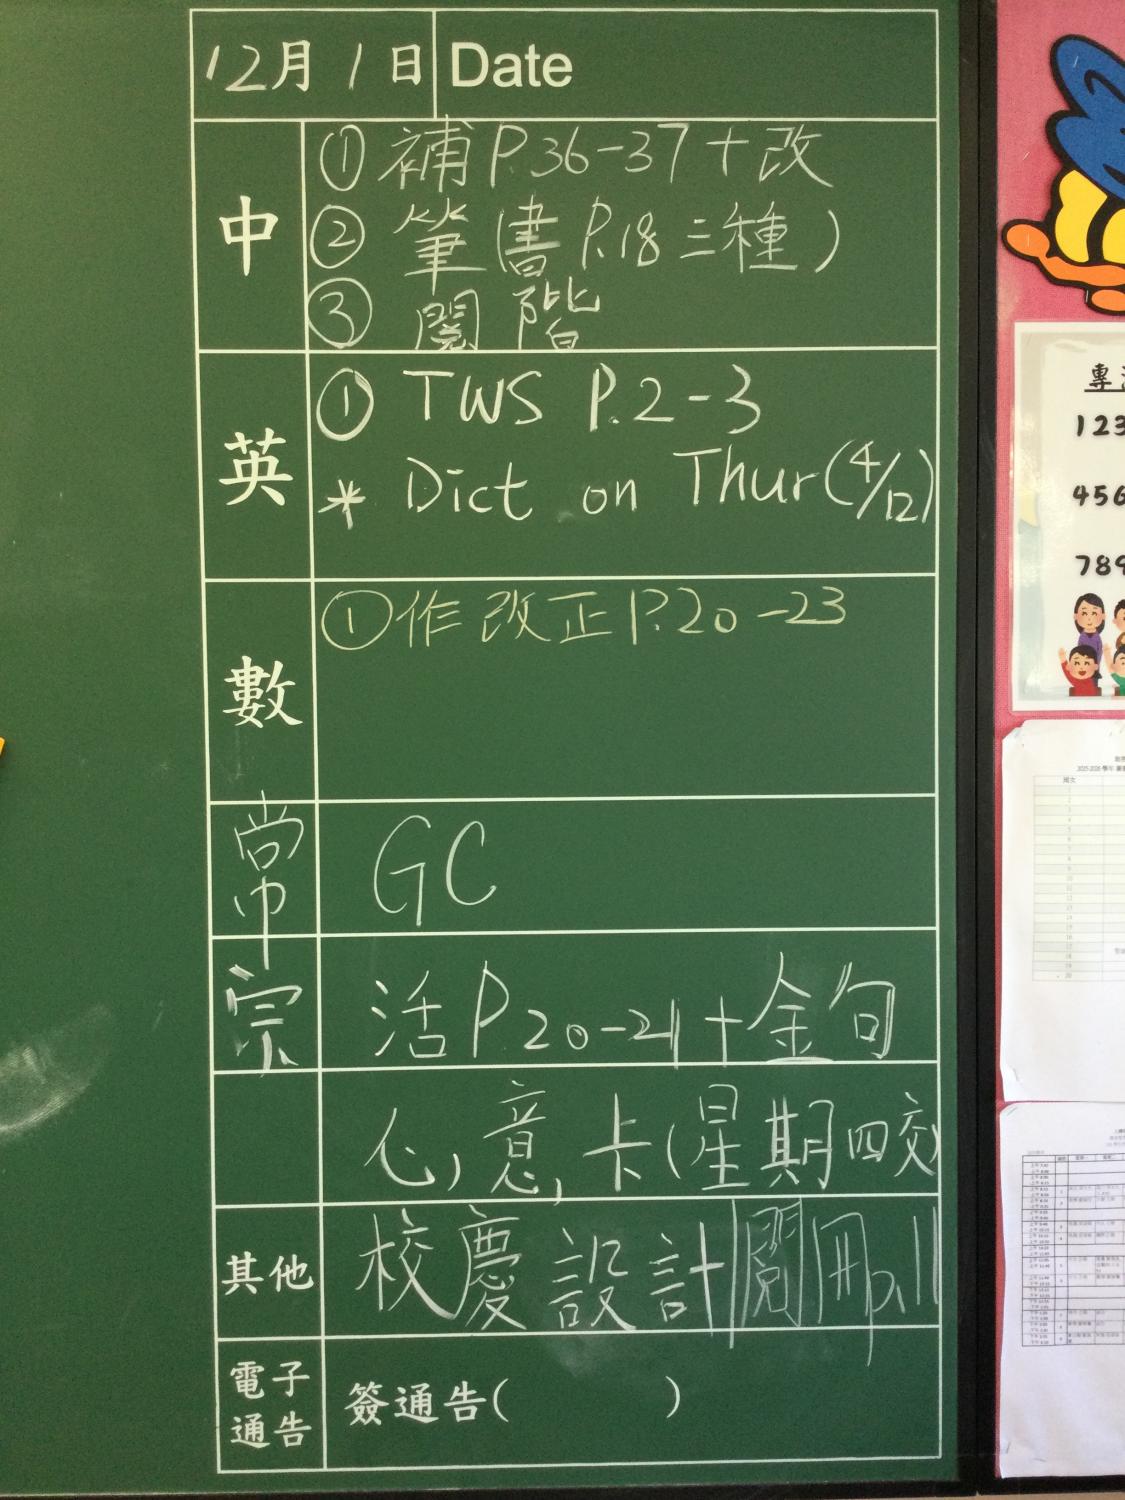 12月1日 Date
中
① 補 P.36-37+改
② 筆(書 P.18 三種)
③ 閱階
英
① TWS P.2-3
* Dict on Thur(4/12)
數
① 作改正 P.20-23
常
GC
宗
活 P.20-21+金句
心,意,卡(星期四交
其他
校慶設計|閱冊p.11
電子
通告
簽通告( )
專
123
456
789